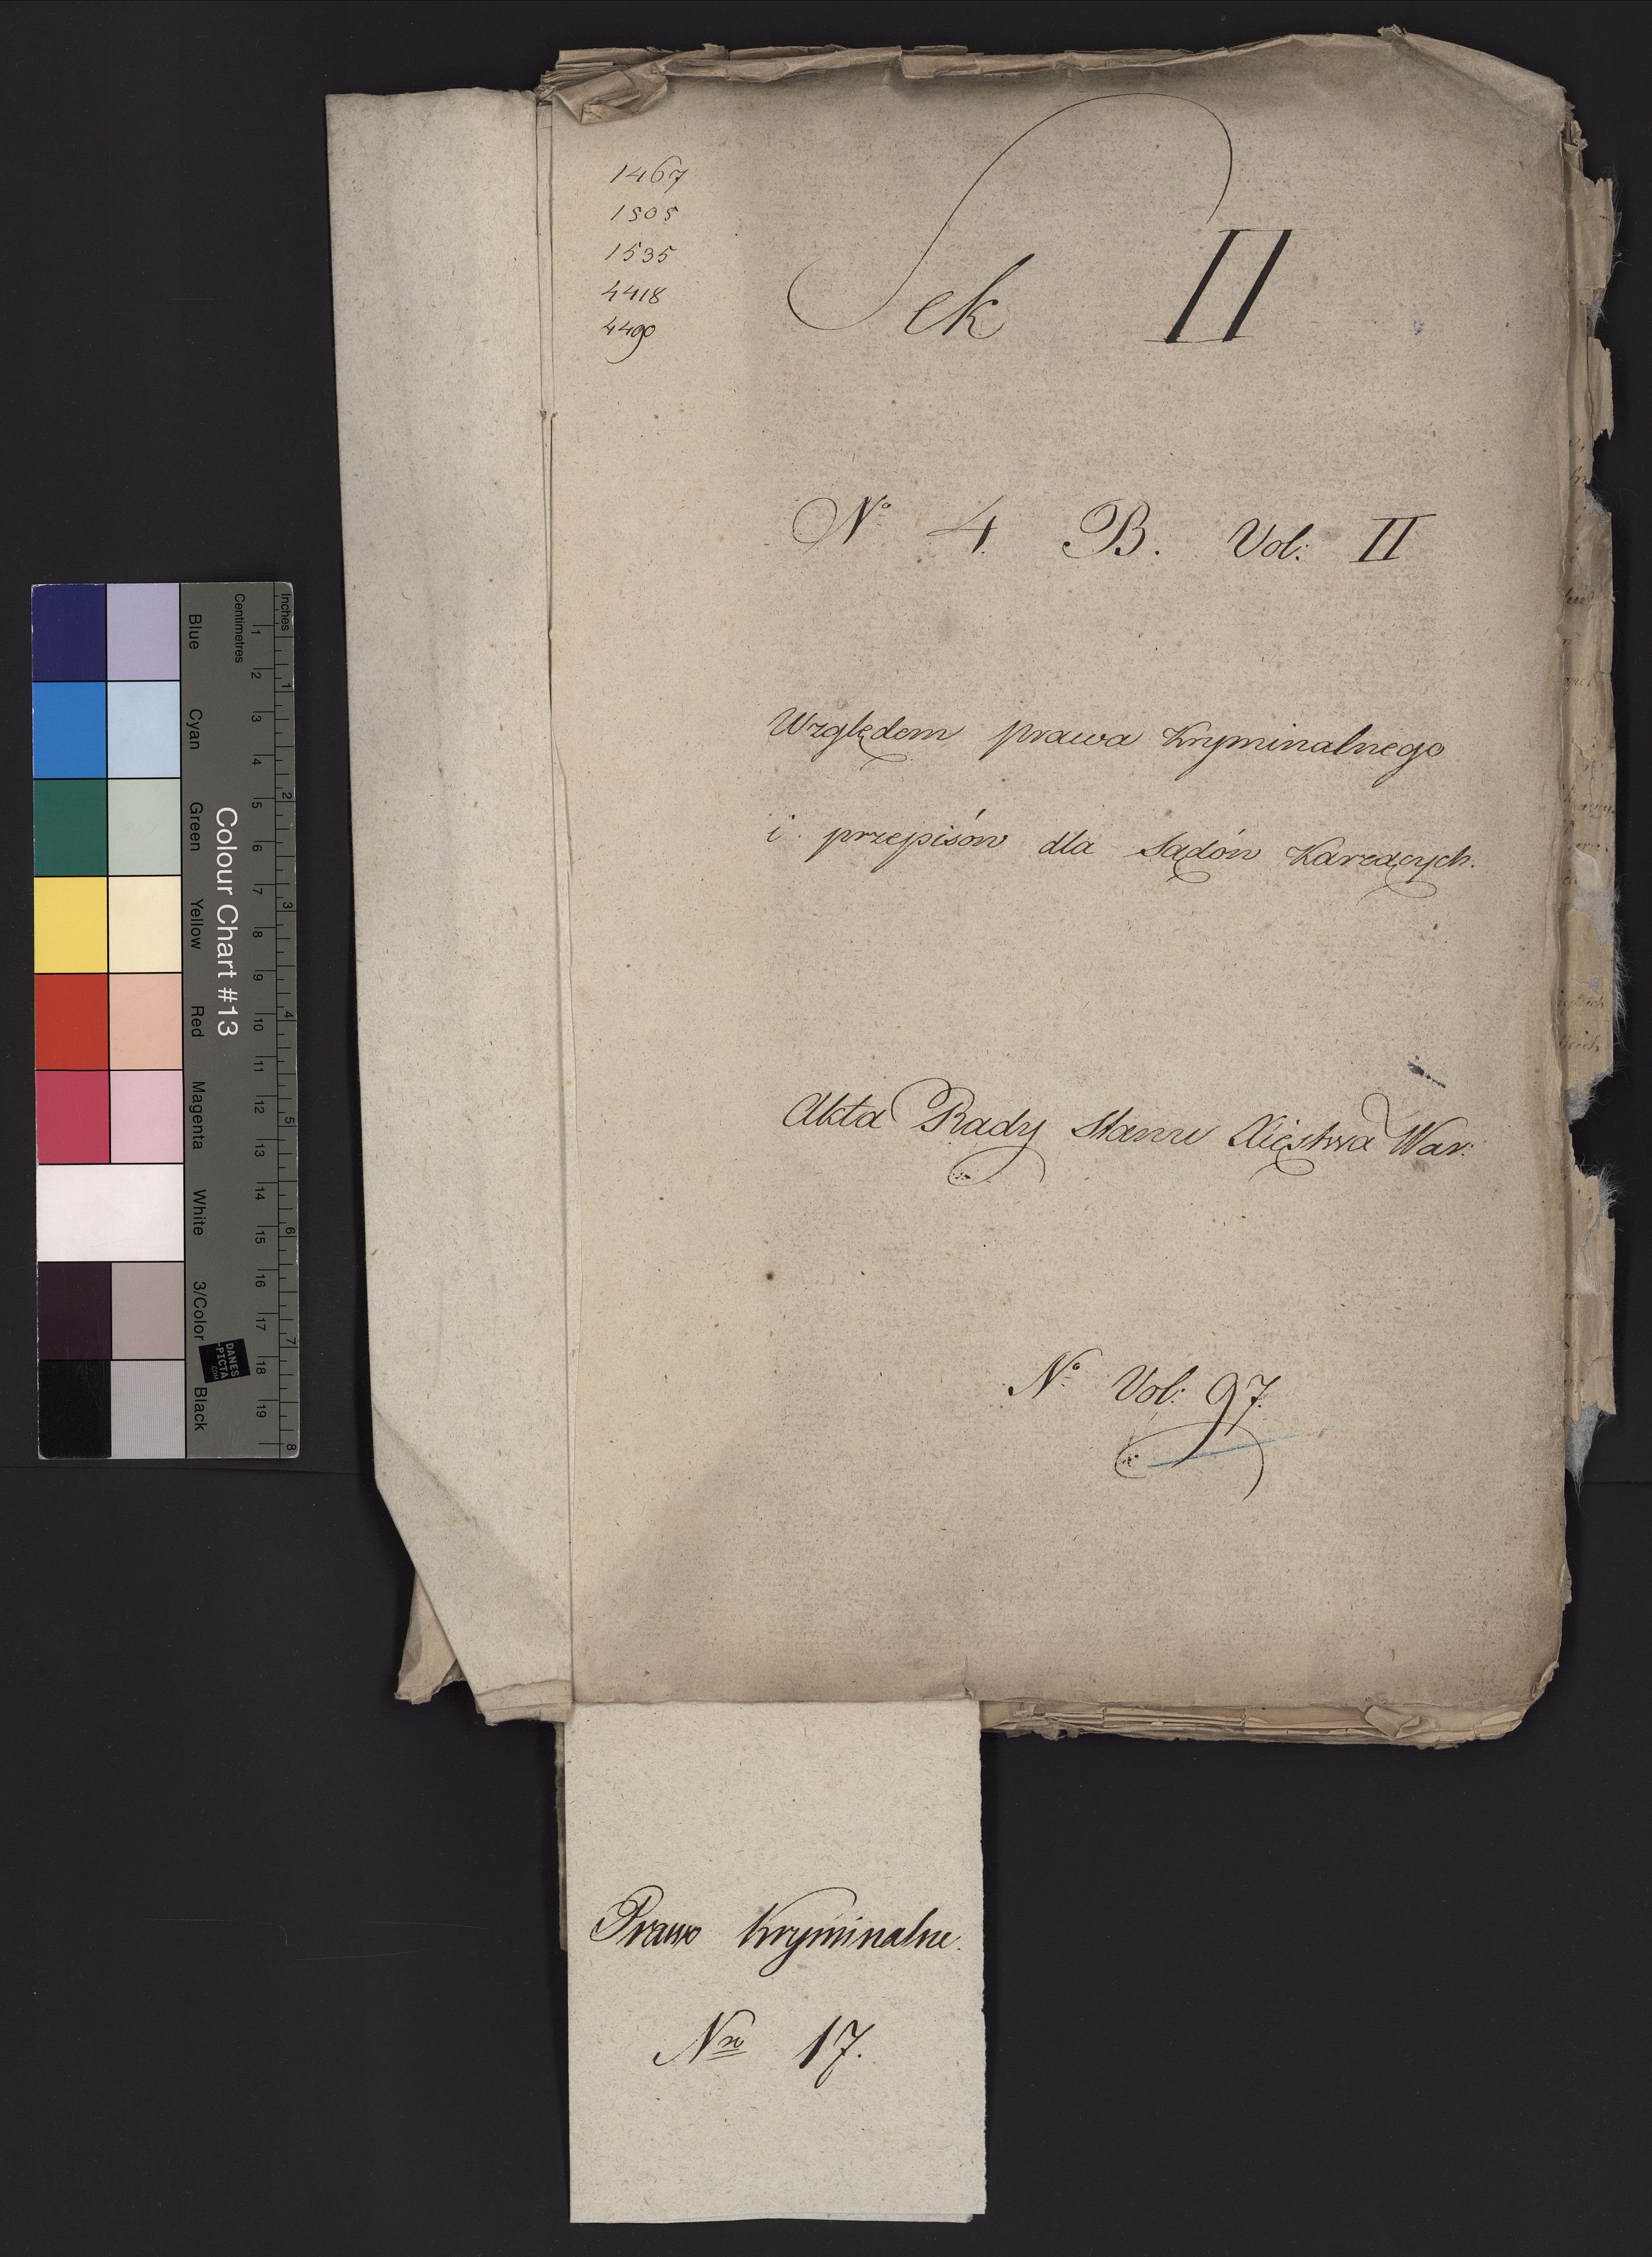 1467
1505
1535
4418
4490
Sek II
No 4. B. Vol: II
Względem prawa Kryminalnego
i przepisów dla Sądów Karzących.
Akta Rady Stanu Xięstwa War:
No Vol: 97.
Prawo Kryminalne.
Nro 17.
Colour Chart #13
Blue Cyan Green Yellow Red Magenta White 3/Color Black
Centimetres 1 2 3 4 5 6 7 8 9 10 11 12 13 14 15 16 17 18 19
Inches 1 2 3 4 5 6 7 8
DANES
-PICTA
.COM